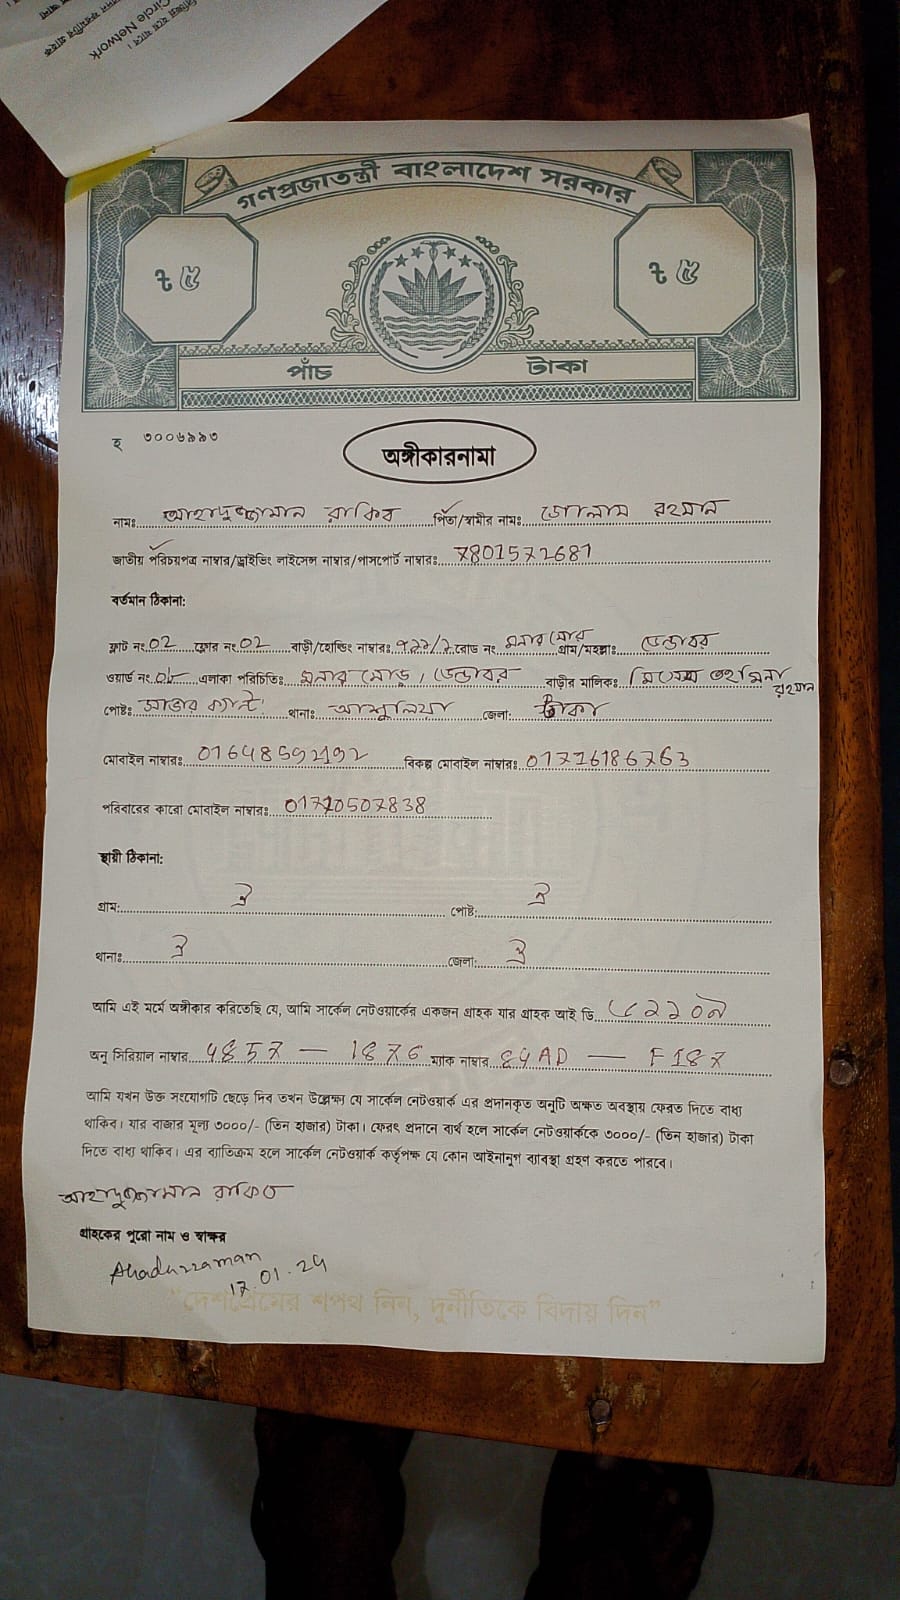 Circle Network
গণপ্রজাতন্ত্রী বাংলাদেশ সরকার
৳ ৫ ৳ ৫
পাঁচ টাকা
হ ৩০০৬৯৯৩
অঙ্গীকারনামা
নামঃ আহাদুজ্জামান রাকিব পিতা/স্বামীর নামঃ গোলাম রহমান
জাতীয় পরিচয়পত্র নাম্বার/ড্রাইভিং লাইসেন্স নাম্বার/পাসপোর্ট নাম্বারঃ 7801572681
বর্তমান ঠিকানা:
ফ্লাট নং 02 ফ্লোর নং 02 বাড়ী/হোল্ডিং নাম্বারঃ রোড নং গ্রাম/মহল্লাঃ ডেন্ডাবর
ওয়ার্ড নং এলাকা পরিচিতিঃ মনার মোড়, ডেন্ডাবর বাড়ীর মালিকঃ রহমান
পোষ্টঃ সাভার ক্যান্ট: থানাঃ আশুলিয়া জেলা: ঢাকা
মোবাইল নাম্বারঃ বিকল্প মোবাইল নাম্বারঃ 01716186763
পরিবারের কারো মোবাইল নাম্বারঃ
স্থায়ী ঠিকানা:
গ্রাম: ঐ পোষ্ট: ঐ
থানাঃ ঐ জেলা: ঐ
আমি এই মর্মে অঙ্গীকার করিতেছি যে, আমি সার্কেল নেটওয়ার্কের একজন গ্রাহক যার গ্রাহক আই ডি
অনু সিরিয়াল নাম্বার 4857 — 1876 ম্যাক নাম্বার 84AD — F187
আমি যখন উক্ত সংযোগটি ছেড়ে দিব তখন উল্লেক্ষ্য যে সার্কেল নেটওয়ার্ক এর প্রদানকৃত অনুটি অক্ষত অবস্থায় ফেরত দিতে বাধ্য
থাকিব। যার বাজার মূল্য ৩০০০/- (তিন হাজার) টাকা। ফেরৎ প্রদানে ব্যর্থ হলে সার্কেল নেটওয়ার্ককে ৩০০০/- (তিন হাজার) টাকা
দিতে বাধ্য থাকিব। এর ব্যতিক্রম হলে সার্কেল নেটওয়ার্ক কর্তৃপক্ষ যে কোন আইনানুগ ব্যাবস্থা গ্রহণ করতে পারবে।
আহাদুজ্জামান রাকিব
গ্রাহকের পুরো নাম ও স্বাক্ষর
Ahaduzzaman
17.01.24
"দেশপ্রেমের শপথ নিন, দুর্নীতিকে বিদায় দিন"